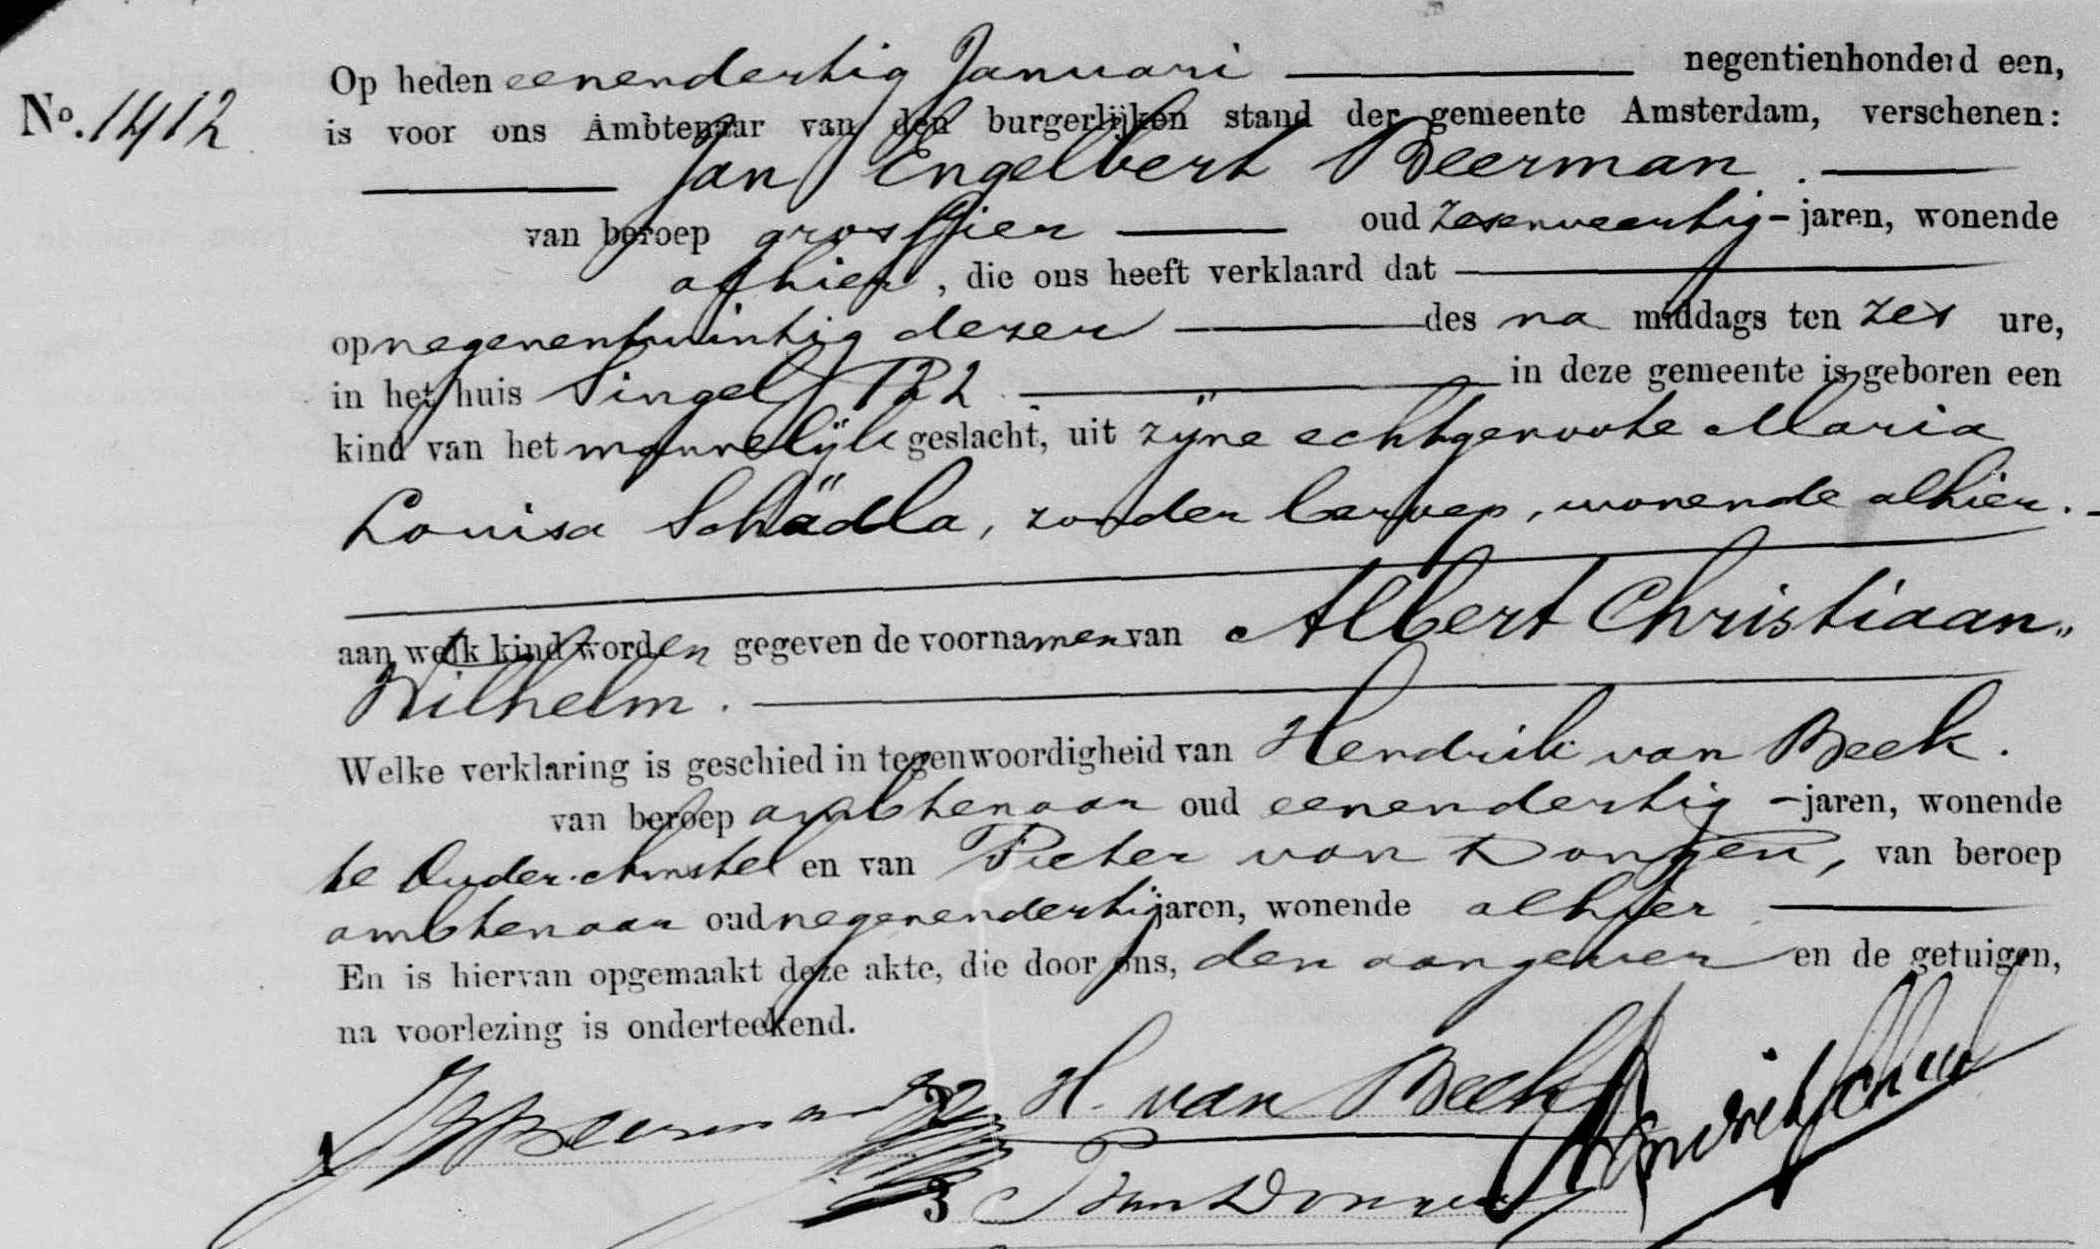 Op heden eenendertig Januari negentienhonderd een,
No. 1412
is voor ons Ambtenaar van den burgerlijken stand der gemeente Amsterdam, verschenen:
Jan Engelbert Beerman.
van beroep grossier oud zesenveertig - jaren, wonende
alhier, die ons heeft verklaard dat
op negenentwintig dezer des na middags ten zes ure,
in het huis Singel 122 in deze gemeente is geboren een
kind van het mannelijk geslacht, uit zijne echtgenoote Maria
Louisa Schädla, zonder beroep, wonende alhier.
aan welk kind worden gegeven de voornamen van Albert Christiaan„
Wilhelm.
Welke verklaring is geschied in tegenwoordigheid van Hendrik van Beek.
van beroep ambtenaar oud eenendertig - jaren, wonende
te Ouder-Amstel en van Pieter van Dongen, van beroep
ambtenaar oud negenendertig jaren, wonende alhier
En is hiervan opgemaakt deze akte, die door ons, den aangever en de getuigen,
na voorlezing is onderteekend.
1 JEBeerman 2 H. van Beek
3 P van Dongen